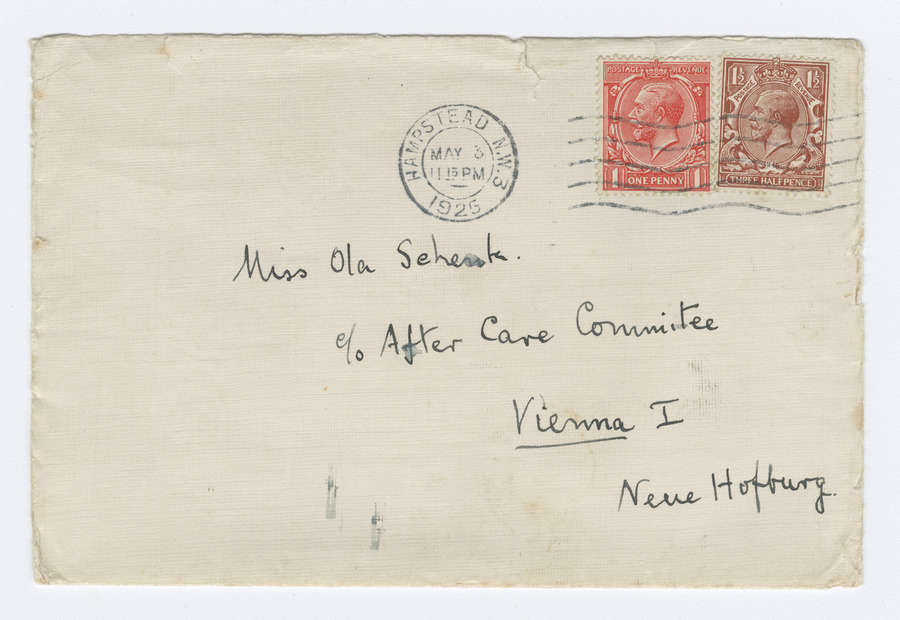 HAMPSTEAD N.W.3
MAY 3
11 15 PM
1925
POSTAGE REVENUE
1 ONE PENNY 1
1½ 1½
POSTAGE REVENUE
THREE HALFPENCE
Miss Ola Schenk.
c/o After Care Commitee
Vienna I
Neue Hofburg.